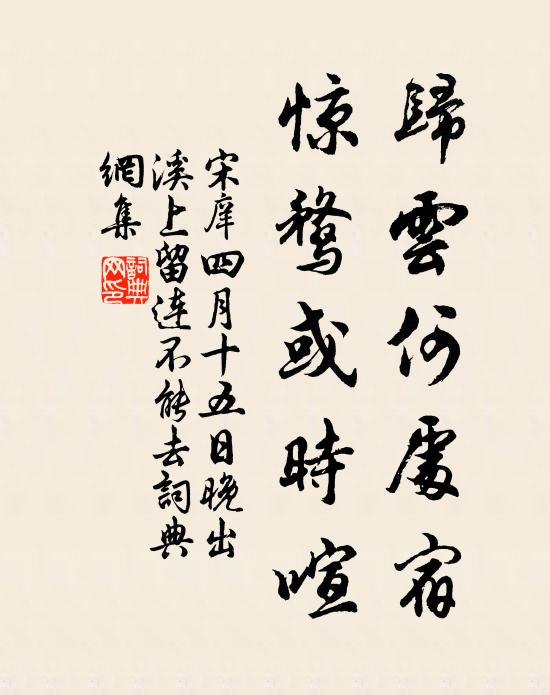 歸雲何處宿
惊鹜或時喧
宋庠四月十五日晚出
溪上留连不能去詞典
網集
詞典網印